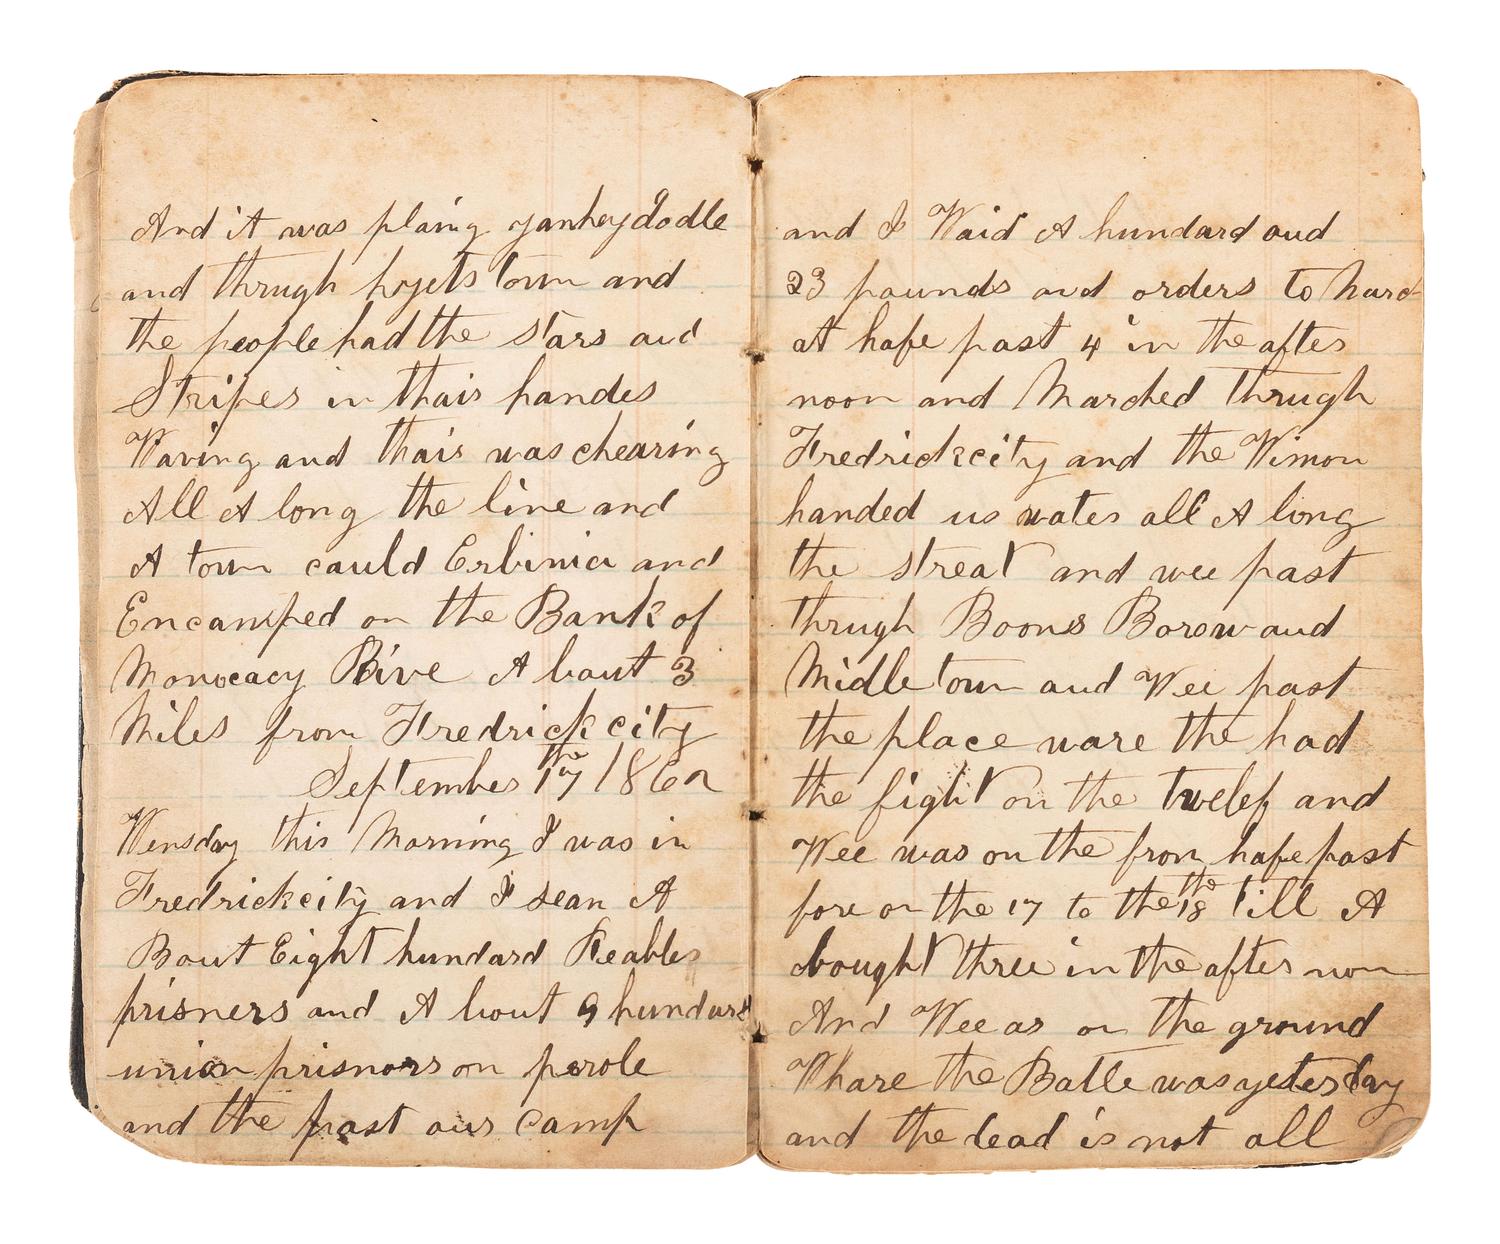 And it was plaing yankeydodle
and thrugh hyets town and
the people had the stars and
Stripes in thair handes
Waving and thair was chearing
All A long the line and
A town cauld Erbinia and
Encamped on the Bank of
Monocacy Rive A bout 3
Miles from Fredrick city
September 17the 1862
Wensday this Morning I was in
Fredrickcity and I sean A
Bout Eight hundard Reables
prisners and A bout 9 hundard
union prisnors on parole
and the past our camp
and I Waid A hundard and
23 pounds and orders to March
at hafe past 4 in the after
noon and Marched thrugh
Fredrickcity and the Wimon
handed us water all A long
the streat and wee past
thrugh Boons Borow and
Midletown and Wee past
the place ware the had
the fight on the twelef and
Wee was on the from hafe past
fore on the 17 to the 18the till A
bought three in the after noon
And Wee as on the ground
Whare the Batle was yesterday
and the dead is not all